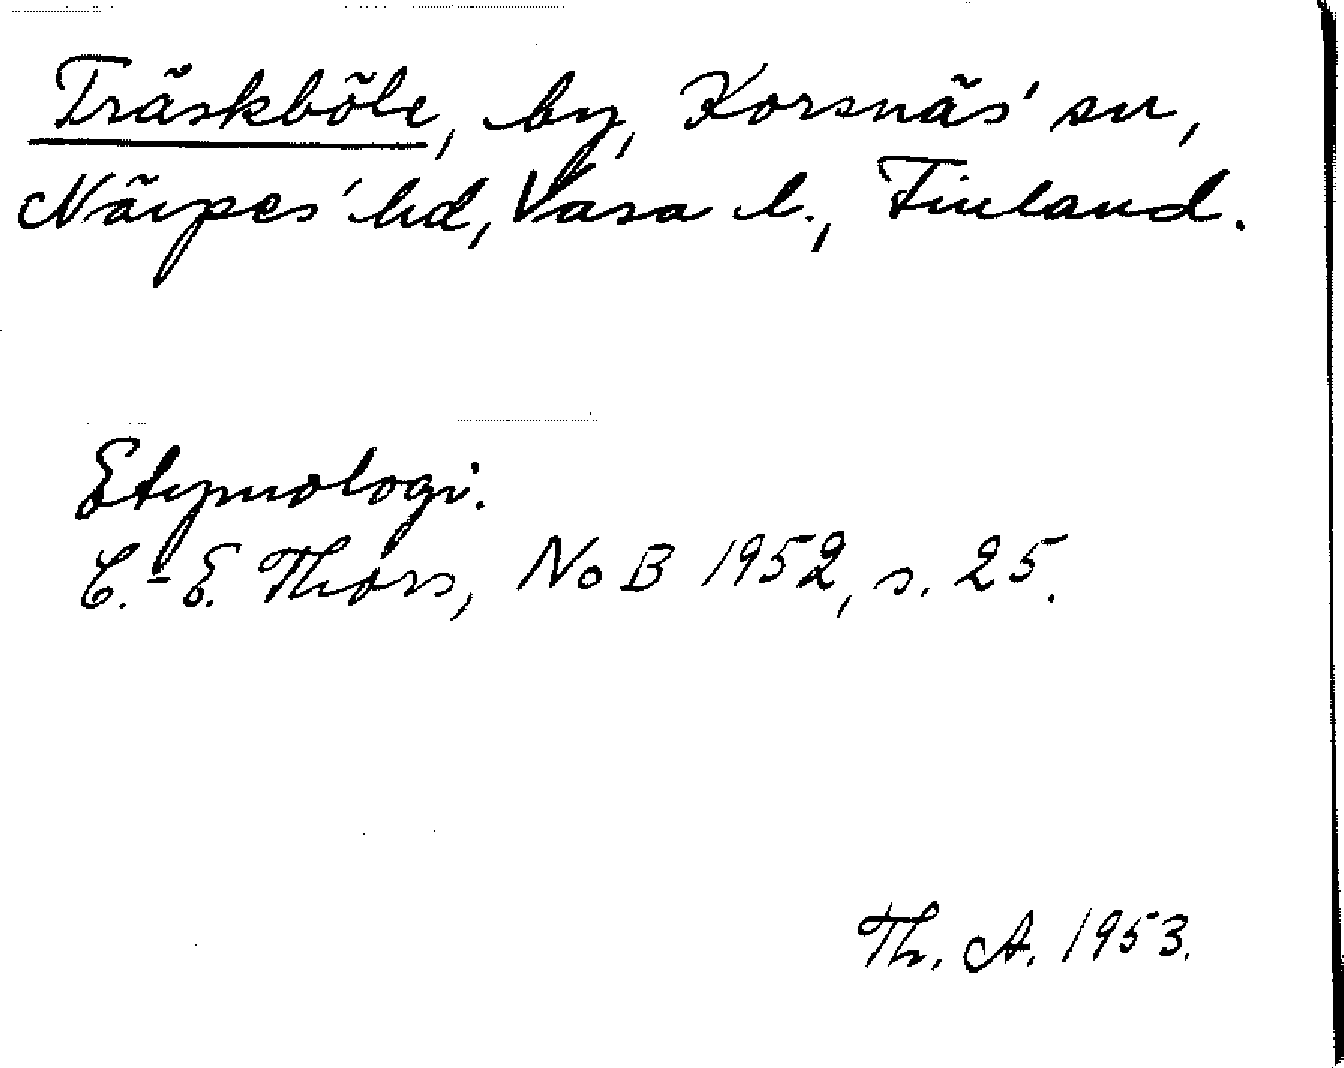 Träskböle, by, Korsnäs' sn,
Närpes' hd, Vasa l., Finland.
Etymologi.
C.-E. Thors, NoB 1952, s. 25.
Th. A. 1953.